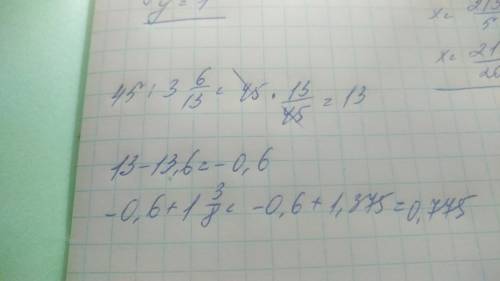 y = 1
x = 213/5
x = 21/20
45 : 3 6/13 = 45 · 13/45 = 13
13 - 13,6 = -0,6
-0,6 + 1 3/8 = -0,6 + 1,375 = 0,775